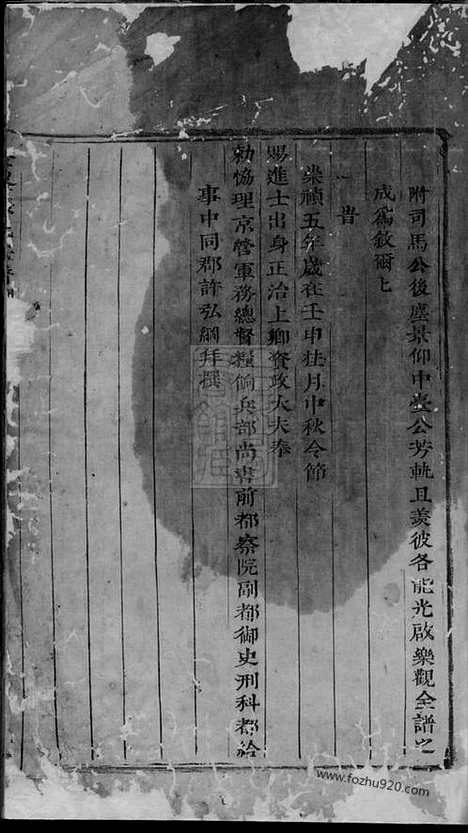 附司馬公後塵景仰中壘公芳軌且羨彼各能光啟樂觀全譜之
成爲敘爾上
旹
崇禎五年歲在壬申桂月中秋令節
賜進士出身正治上卿資政大夫奉
勅協理京營軍務總督糧餉兵部尚書前都察院副都御史刑科都給
事中同郡許弘綱拜撰
www.fozhu920.com